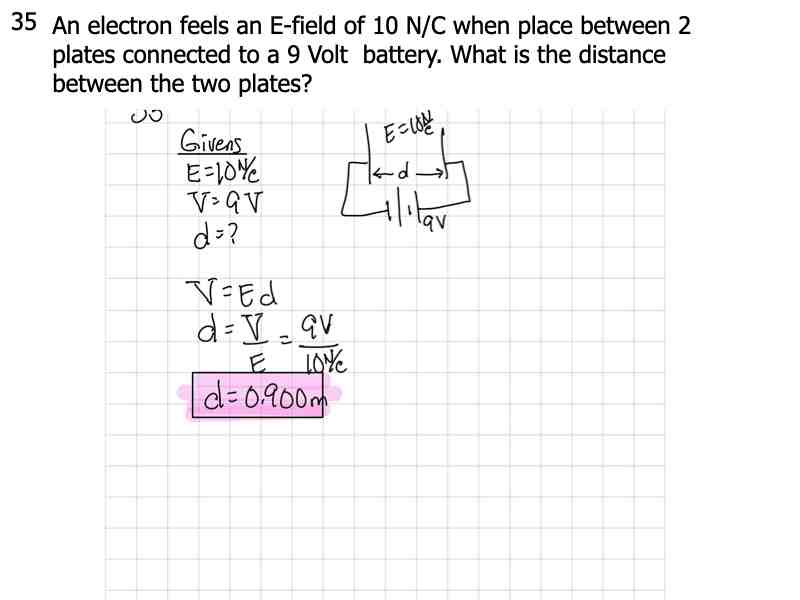 35 An electron feels an E-field of 10 N/C when place between 2
plates connected to a 9 Volt battery. What is the distance
between the two plates?
Givens
E=10N/C
V=9V
d=?
E=10N/C
d
9V
V=Ed
d=V/E=9V/10N/C
d=0.900m